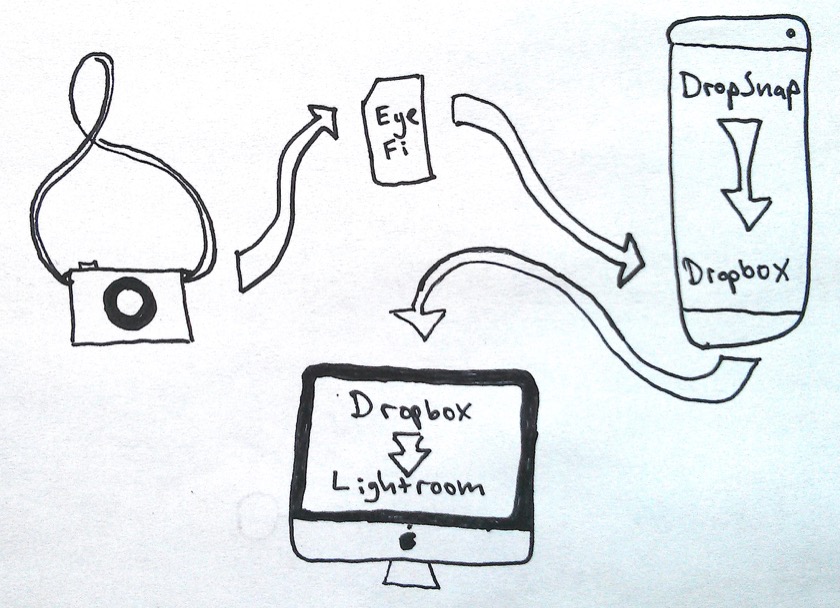 Eye
Fi
DropSnap
Dropbox
Dropbox
Lightroom